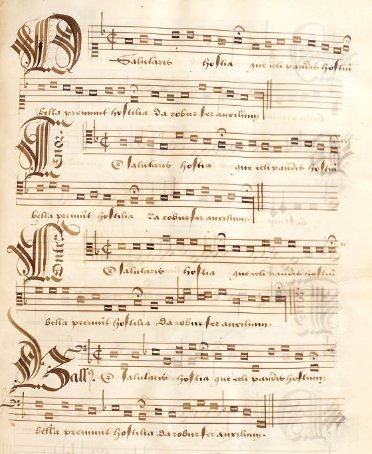 O Salutaris hostia que celi pandis hostiu
bella premunt hostilia da robur fer auxilium
Tenor
O salutaris hostia que celi pandis hostiu
bella premut hostilia da robur fer auxilium
Contra
O salutaris hostia que celi pandis hostiu
bella premunt hostilia da robur fer auxilium
Bassus
O salutaris hostia que celi pandis hostium
bella premunt hostilia da robur fer auxilium